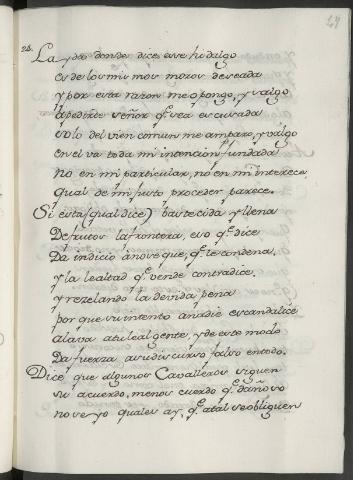 27
28. La yda donde dice este hidalgo
es de los mismos moros deseada
y por esta razon me opongo, y salgo
a pedirte señor q.e sea escusada
solo del vien comun me amparo, y valgo
en el va toda mi intencion fundada
no en mi particular, no en mi interece
qual de mi justo proceder parece.
Si esta (qual dice) bastecida y llena
De frutos la frontera, eso q.e dice
Da indicio à nove que, q.e le condena,
y la lealtad q.e vende contradice.
y rezelando la devida pena
por que su intento añadie escandalice
alava atu leal gente, y de este modo
Da fuerza a su discurso falso en todo.
Dice que algunos Cavalleros siguen
su acuerdo, menos cuerdo q.e dañoso
no se yo quales ay, q.e atal se obliguen